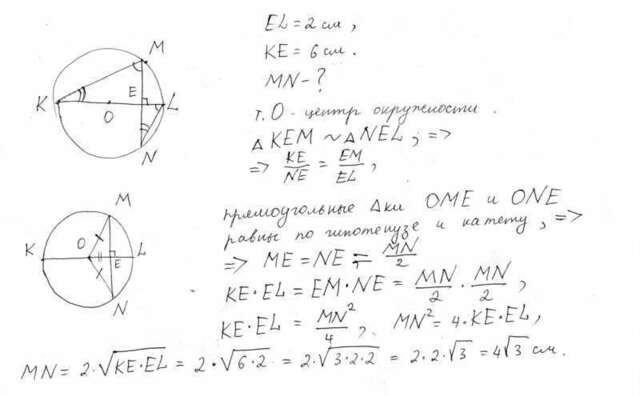 EL = 2 см,
KE = 6 см.
MN - ?
т. O - центр окружности.
△ KEM ~ △ NEL, =>
=> KE/NE = EM/EL,
M
K
E
L
O
N
прямоугольные △ки OME и ONE
равны по гипотенузе и катету, =>
=> ME = NE = MN/2
KE · EL = EM · NE = MN/2 · MN/2,
KE · EL = MN²/4, MN² = 4 · KE · EL,
M
K
O
E
L
N
MN = 2·√KE·EL = 2·√6·2 = 2·√3·2·2 = 2·2·√3 = 4√3 см.